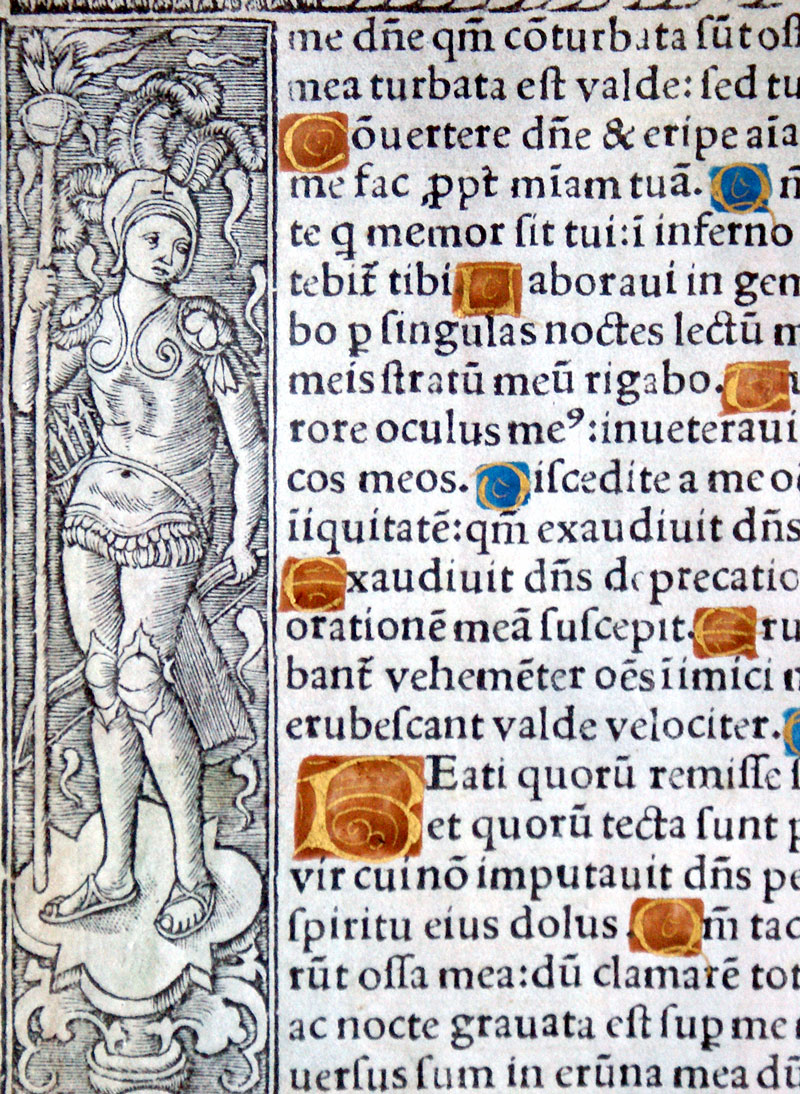 me dñe qm̃ cõturbata sũt oſſ
mea turbata eſt valde: ſed tu
Cõuertere dñe & eripe aĩa
me fac ꝓpt̃ mĩam tuã. Q m̃
te q memor ſit tui:ĩ inferno
tebit̃ tibi Laboraui in gem
bo p̱ ſingulas noctes lectũ m
meis ſtratũ meũ rigabo. T
rore oculus meꝰ:inueteraui
cos meos. Diſcedite a me oẽ
ĩiquitatẽ:qm̃ exaudiuit dñs
Exaudiuit dñs deprecatio
orationẽ meã ſuſcepit. Eru
bant̃ vehemẽter oẽs ĩimici m
erubeſcant valde velociter.
BEati quorũ remiſſe ſ
et quorũ tecta ſunt p
vir cui nõ imputauit dñs pe
ſpiritu eius dolus. Qm̃ tac
rũt oſſa mea:dũ clamarẽ tot
ac nocte grauata eſt ſuꝑ me
uerſus ſum in erũna mea dũ